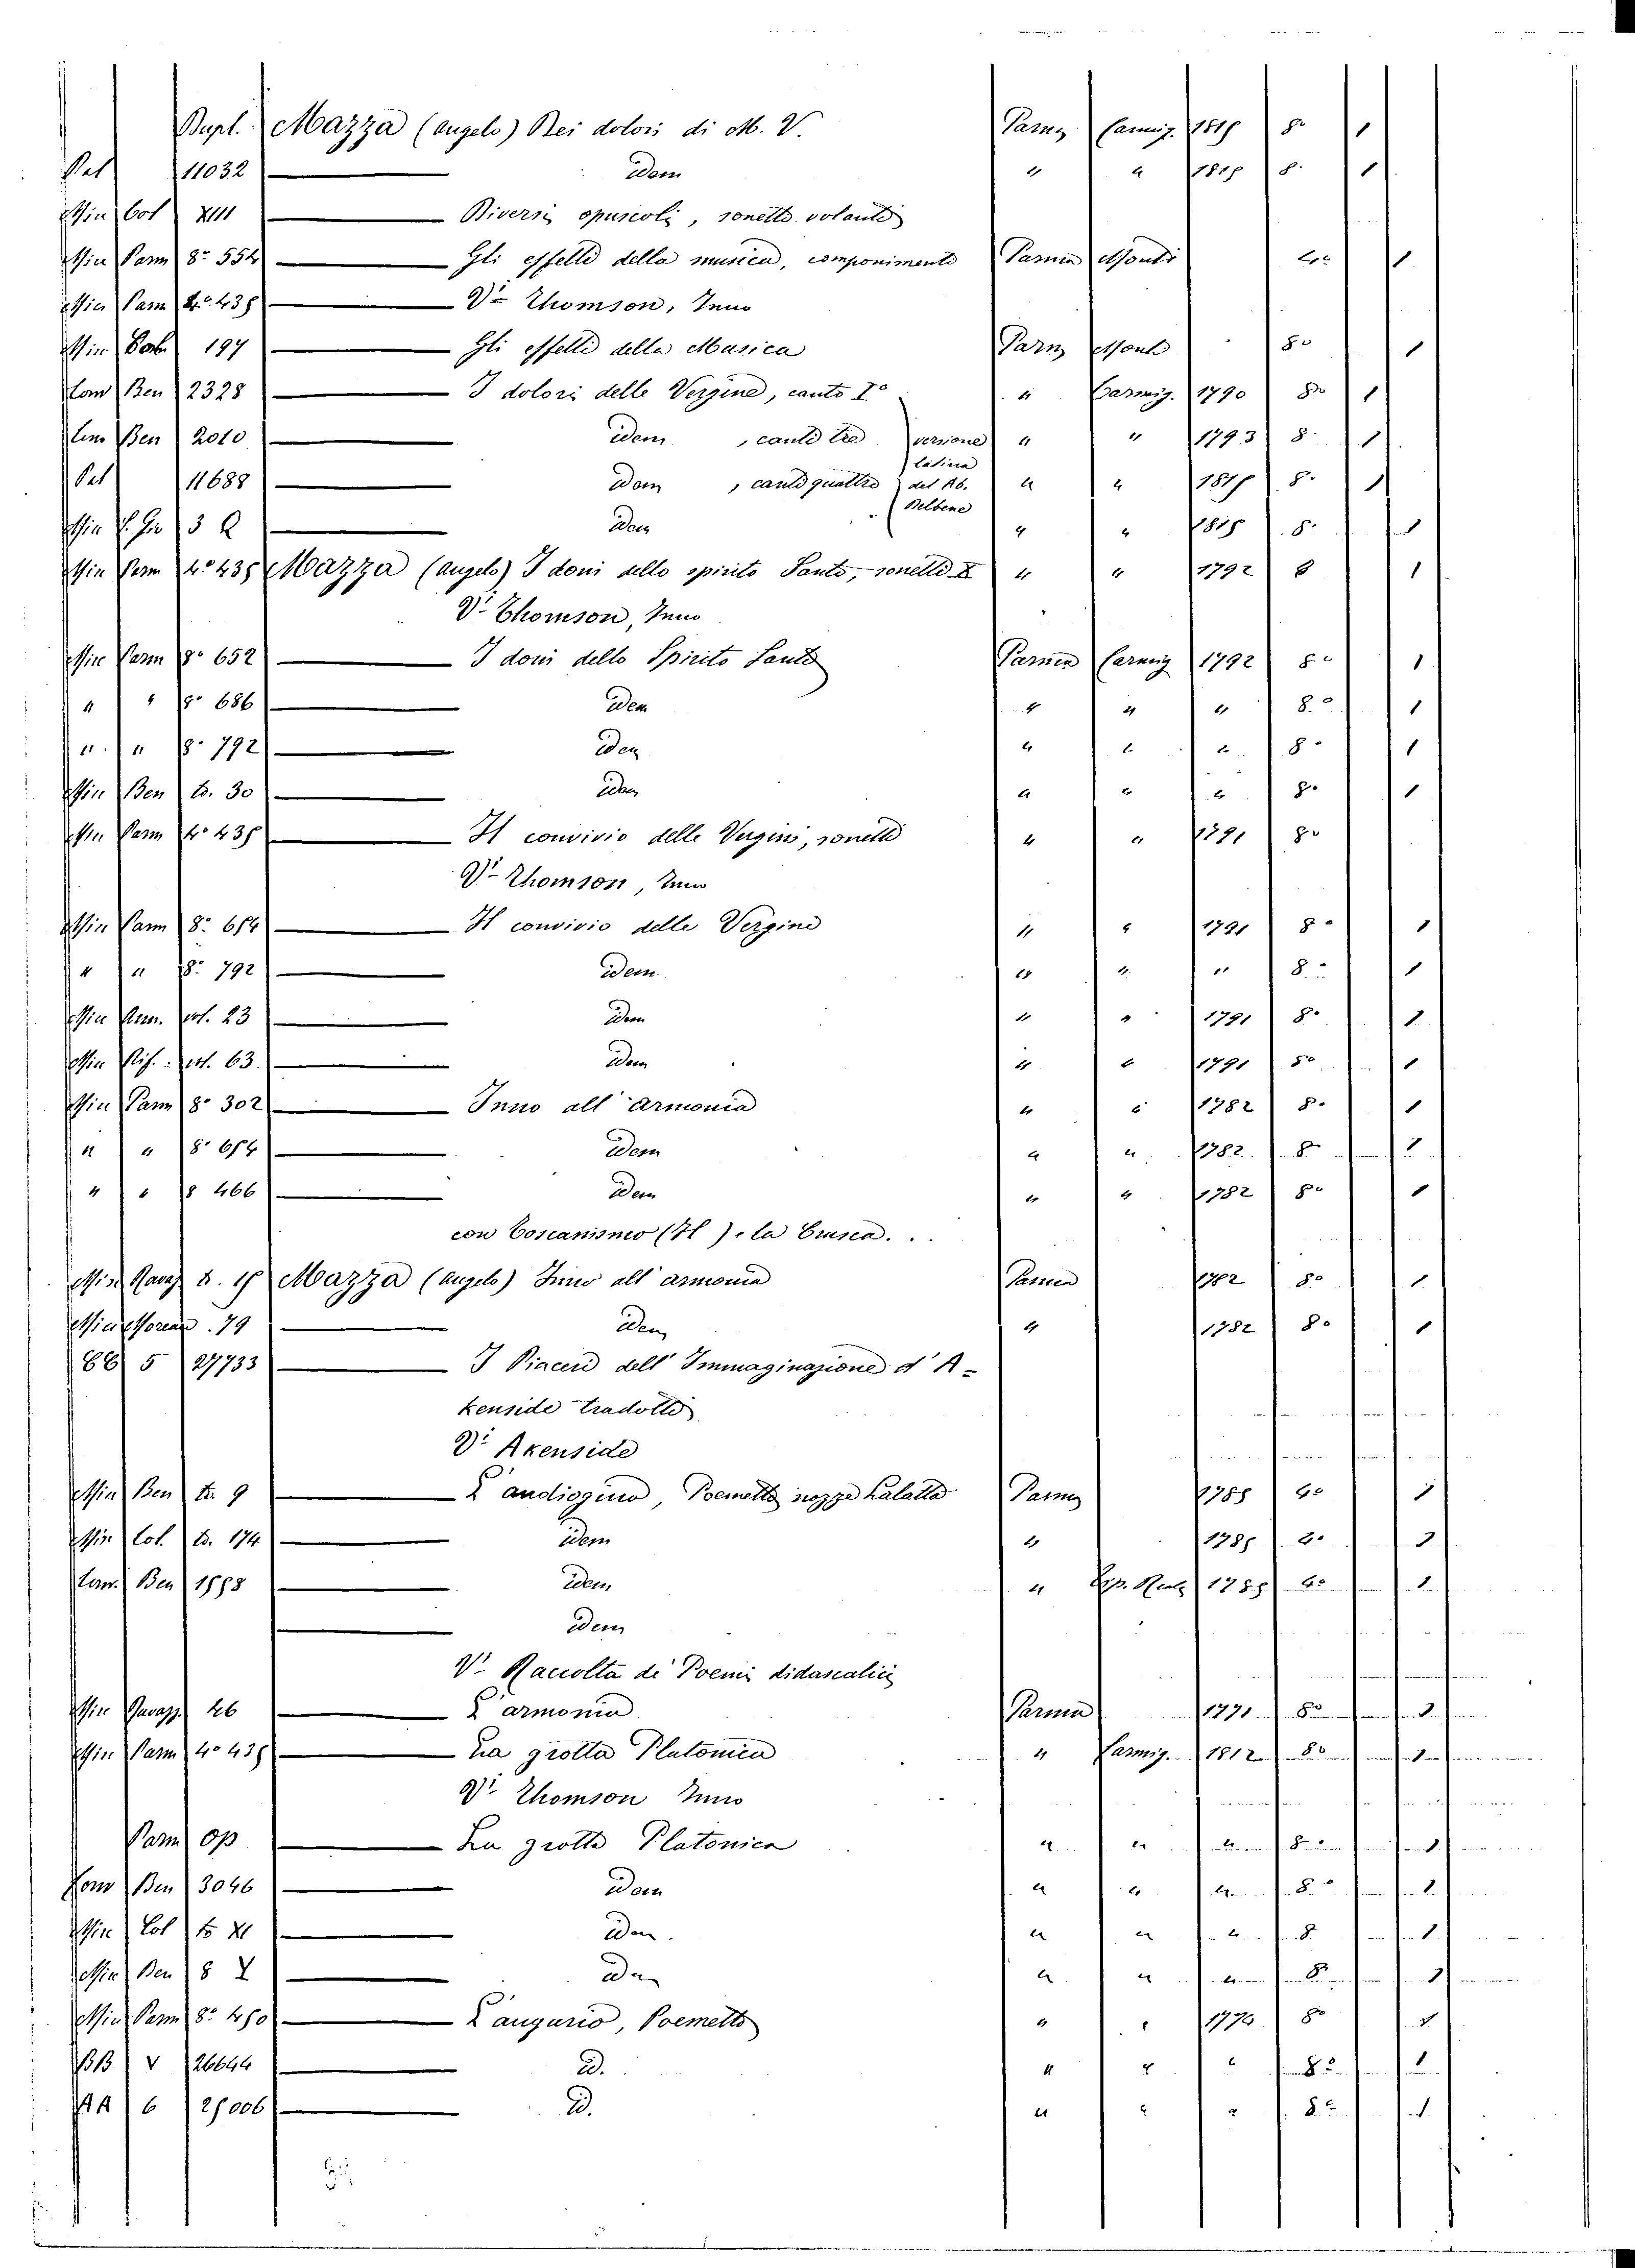 Dupl. Mazza (Angelo) Dei dolori di M. V. Parma Carmig. 1815 8º 1
Pal 11032 — idem " " 1815 8º 1
Min Bol XIII — Diversi opuscoli, sonetti volanti
Min Parm 8º 554 — Gli effetti della musica, componimento Parma Monti 4º 1
Min Parm 4º 435 — Vi Thomson, Inno
Min 197 — Gli effetti della Musica Parm Monti 8º 1
Com Ben 2328 — I dolori delle Vergine, canto Iº " Carmig. 1790 8º 1
Com Ben 2010 — idem, canti tre versione " " 1793 8º 1
latina
Pal 11688 — idem, canti quattro del Ab. " " 1815 8º 1
Belbene
Min — idem " " 1815 8º 1
Min Parm 4º 435 Mazza (Angelo) I doni dello spirito Santo, sonetti X " " 1792 8 1
Vi Thomson, Inno
Min Parm 8º 652 — I doni dello Spirito Santo Parma Carmig 1792 8º 1
" " 8º 686 — idem " " " 8º 1
" " 8º 792 — idem " " " 8º 1
Min Ben to. 30 — idem " " " 8º 1
Min Parm 4º 435 — Il convivio delle Vergini, sonetti " " 1791 8º
Vi Thomson, Inno
Min Parm 8º 654 — Il convivio delle Vergini " " 1791 8º 1
" " 8º 792 — idem " " " 8º 1
Min 23 — idem " " 1791 8º 1
Min 63 — idem " " 1791 8º 1
Min Parm 8º 302 — Inno all' Armonia " " 1782 8º 1
" " 8º 654 — idem " " 1782 8º 1
" " 8 466 — idem " " 1782 8º 1
con Toscanismo (Il), la Crusca. . .
Min to. Mazza (Angelo) Inno all' armonia Parma 1782 8º 1
Min 79 — idem " 1782 8º 1
5 27733 — I Piaceri dell' Immaginazione d' A-
kenside tradotti
Vi Akenside
Min Ben to. 9 — L' andiogino, Poemetto nozze Parma 1785 4º 1
Min Col. to. 174 — idem " 1785 1
Com. Ben — idem " Reale 1785 4º 1
— idem
Vi Raccolta di Poemi didascalici
Min 26 — L' armonia Parma 1771 8º 1
Min Parm 4º 435 — La grotta Platonica " Carmig. 1812 8º 1
Vi Thomson Inno
Parm Op — La grotta Platonica " " " 8º 1
Com Ben 3046 — idem " " " 8º 1
Min Col to XI — idem " " " 8 1
Min Ben — idem " " " 8º 1
Min Parm 8º 450 — L' augurio, Poemetto " " 8º 1
BB V 26644 — id. " " " 8º 1
AA 6 25006 — id. " " " 8º 1